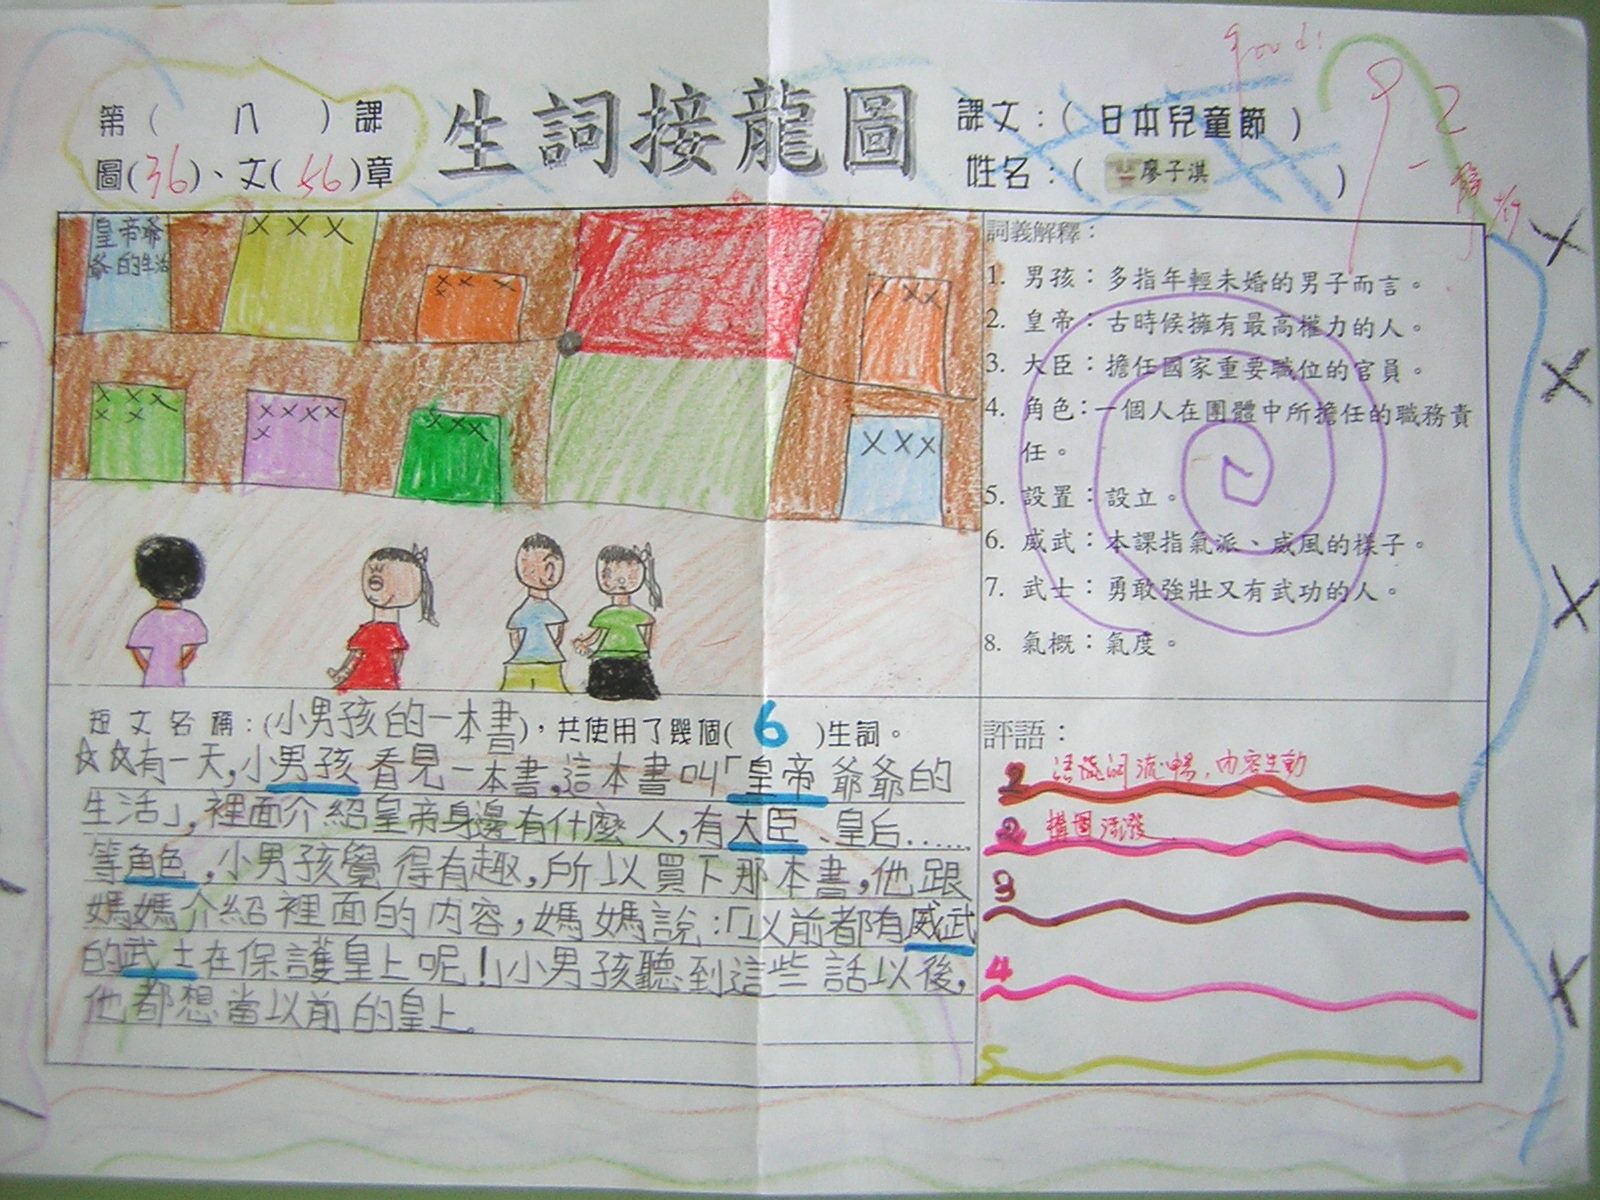 good!
92
第（ 八 ）課
圖(36)、文(56)章
生詞接龍圖
課文：( 日本兒童節 )
姓名：( 廖子淇 )
皇帝爺
爺的生活
X X X
X X X
X
X X X
X X X
X X
X X X X
X
X X X
X X X
詞義解釋：
1. 男孩：多指年輕未婚的男子而言。
2. 皇帝：古時候擁有最高權力的人。
3. 大臣：擔任國家重要職位的官員。
4. 角色：一個人在團體中所擔任的職務責
任。
5. 設置：設立。
6. 威武：本課指氣派、威風的樣子。
7. 武士：勇敢強壯又有武功的人。
8. 氣概：氣度。
短文名稱：(小男孩的一本書)，共使用了幾個( 6 )生詞。
☆☆有一天,小男孩看見一本書,這本書叫「皇帝爺爺的
生活」,裡面介紹皇帝身邊有什麼人,有大臣、皇后……
等角色,小男孩覺得有趣,所以買下那本書,他跟
媽媽介紹裡面的內容,媽媽說:「以前都有威武
的武士在保護皇上呢!」小男孩聽到這些話以後,
他都想當以前的皇上。
評語：
流暢,內容生動
2 構圖活潑
3
4
5